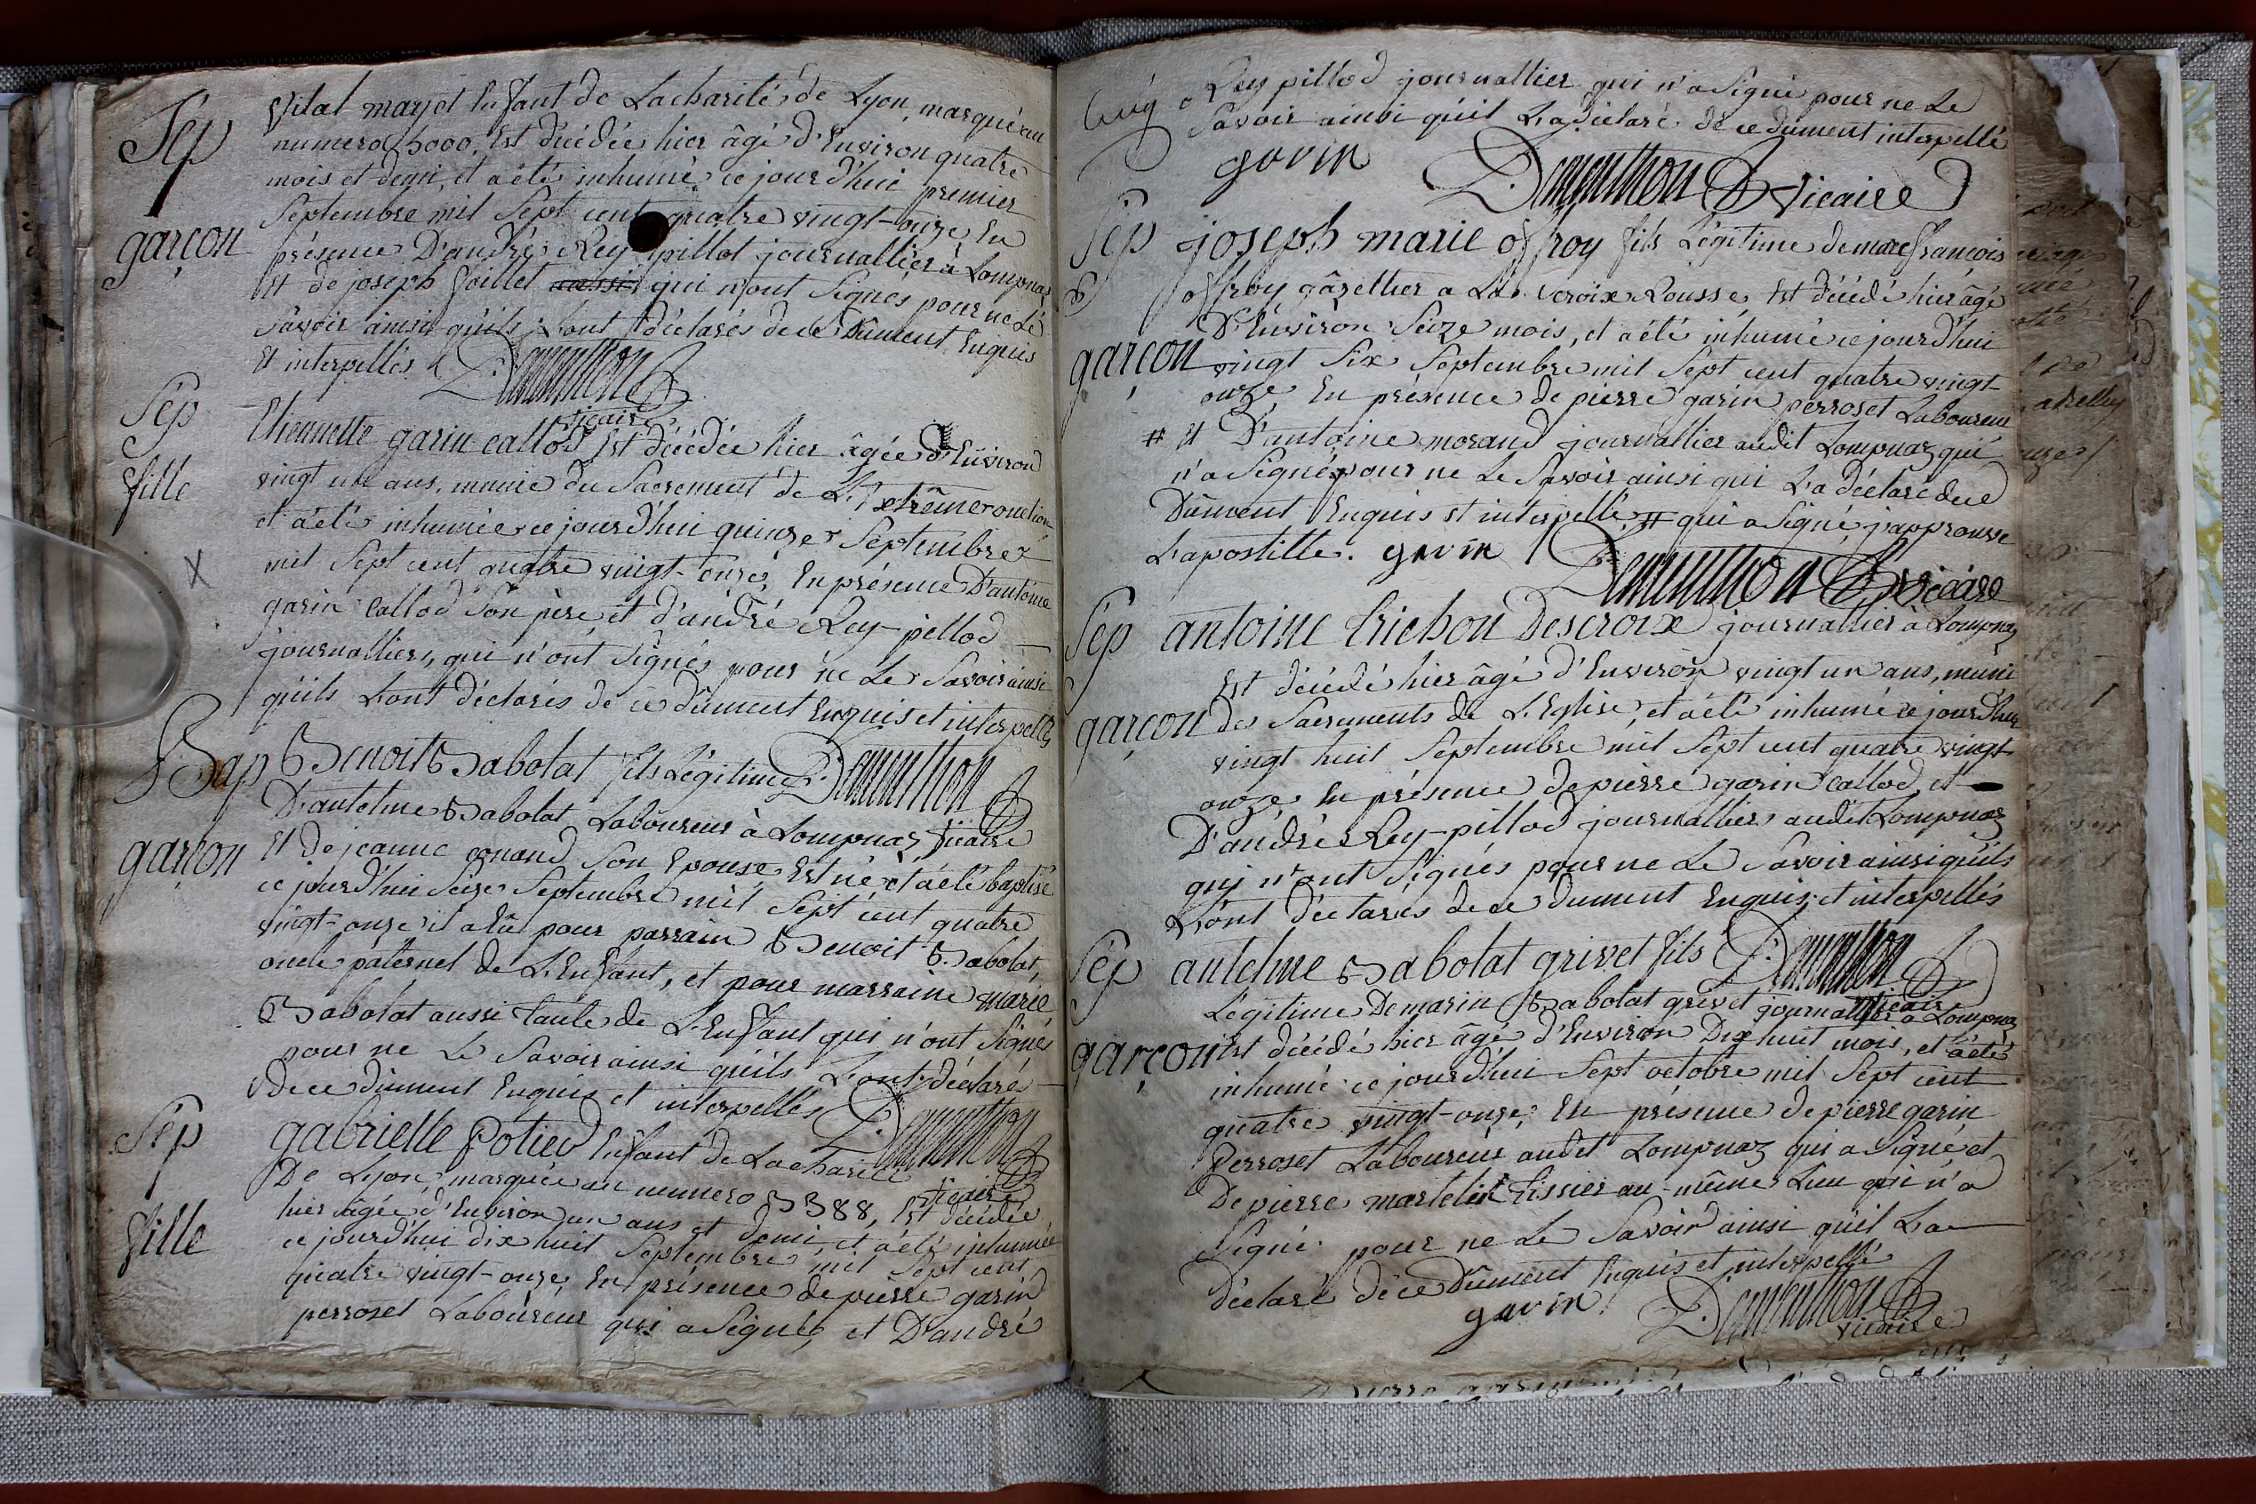 Sép
garçon
Vital marjot Enfant de Lacharité de Lyon, marqué au
numero 5000, Est décédée hier âgé d'Environ quatre
mois et demi, et a été inhumé ce jourd'hui premier
Septembre mil Sept cent quatre vingt-onze En
présence D'andré Rey pillot journallier à Lompnaz
Et de joseph foillet aussi qui n'ont Signés pour ne Le
Savoir ainsi qu'ils L'ont déclarés de ce Dûment Enquis
Et interpellés. Dementhon
vicaire
Sép
fille
Etiennette garin callod Est décédée hier âgée d'Environ
vingt un ans, munie du Sacrement de L'Extrême onction
et a été inhumée ce jourd'hui quinze Septembre
mil Sept cent quatre vingt-onze, En présence D'antoine
garin Callod Son père et d'andré Rey-pillod
journalliers, qui n'ont Signés pour ne Le Savoir ainsi
qu'ils L'ont déclarés de ce dûment Enquis et interpellés
Dementhon
vicaire
Bap
garçon
Benoit Babolat fils Légitime
D'antelme Babolat Laboureur à Lompnaz
Et de jeanne gonand Son Epouse Est né et a été baptisé
ce jourd'hui Seize Septembre mil Sept cent quatre
vingt-onze il a Eû pour parrain Benoit Babolat,
oncle paternel de L'Enfant, et pour marraine marie
Babolat aussi tante de L'Enfant qui n'ont Signés
pour ne Le Savoir ainsi qu'ils L'ont déclaré
De ce dûment Enquis et interpellés Dementhon
vicaire
Sép
fille
gabrielle Potied Enfant de Lacharité
De Lyon, marquée au numero 5388, Est décédée
hier âgée d'Environ un ans et demi, et a été inhumée
ce jourd'hui dix huit Septembre mil Sept cent
quatre vingt-onze, En présence de pierre garin
perroset Laboureur qui a Signé, et D'andré
Rey pillod journallier qui n'a Signé pour ne Le
Savoir ainsi qu'il L'a déclaré de ce dument interpellé
garin Dementhon vicaire
Sép
garçon
joseph marie offroy fils Légitime de marc françois
offroy gâzettier a La croix Rousse Est décédé hier âgé
D'Environ Seize mois, et a été inhumé ce jourd'hui
vingt Six Septembre mil Sept cent quatre vingt-
onze En présence de pierre garin perroset Laboureur
# Et D'antoine morand journallier audit Lompnaz qui
n'a Signé pour ne Le Savoir ainsi qui L'a déclaré de ce
Dûment Enquis et interpellé # qui a Signé, j'approuve
L'apostille. garin Dementhon vicaire
Sép
garçon
antoine Trichon Descroix journallier à Lompnaz
Est décédé hier âgé d'Environ vingt un ans, muni
des Sacrements de L'Eglise, et a été inhumé ce jourd'hui
vingt huit Septembre mil Sept cent quatre vingt-
onze En présence de pierre garin callod, et
D'andré Rey-pillod journalliers audit Lompnaz
qui n'ont Signés pour ne Le Savoir ainsi qu'ils
L'ont déclarés de ce dument Enquis et interpellés
Dementhon
vicaire
Sép
garçon
antelme Babolat grivet fils
Légitime De marin Babolat grivet journallier à Lompnaz
Est décédé hier âgé d'Environ Dix huit mois, et a été
inhumé ce jourd'hui Sept octobre mil Sept cent
quatre vingt-onze, En présence de pierre garin
Perroset Laboureur audit Lompnaz qui a Signé et
De pierre martelin tissier au même Lieu qui n'a
Signé pour ne Le Savoir ainsi qu'il L'a
Déclaré de ce Dûment Enquis et interpellé
garin Dementhon
vicaire